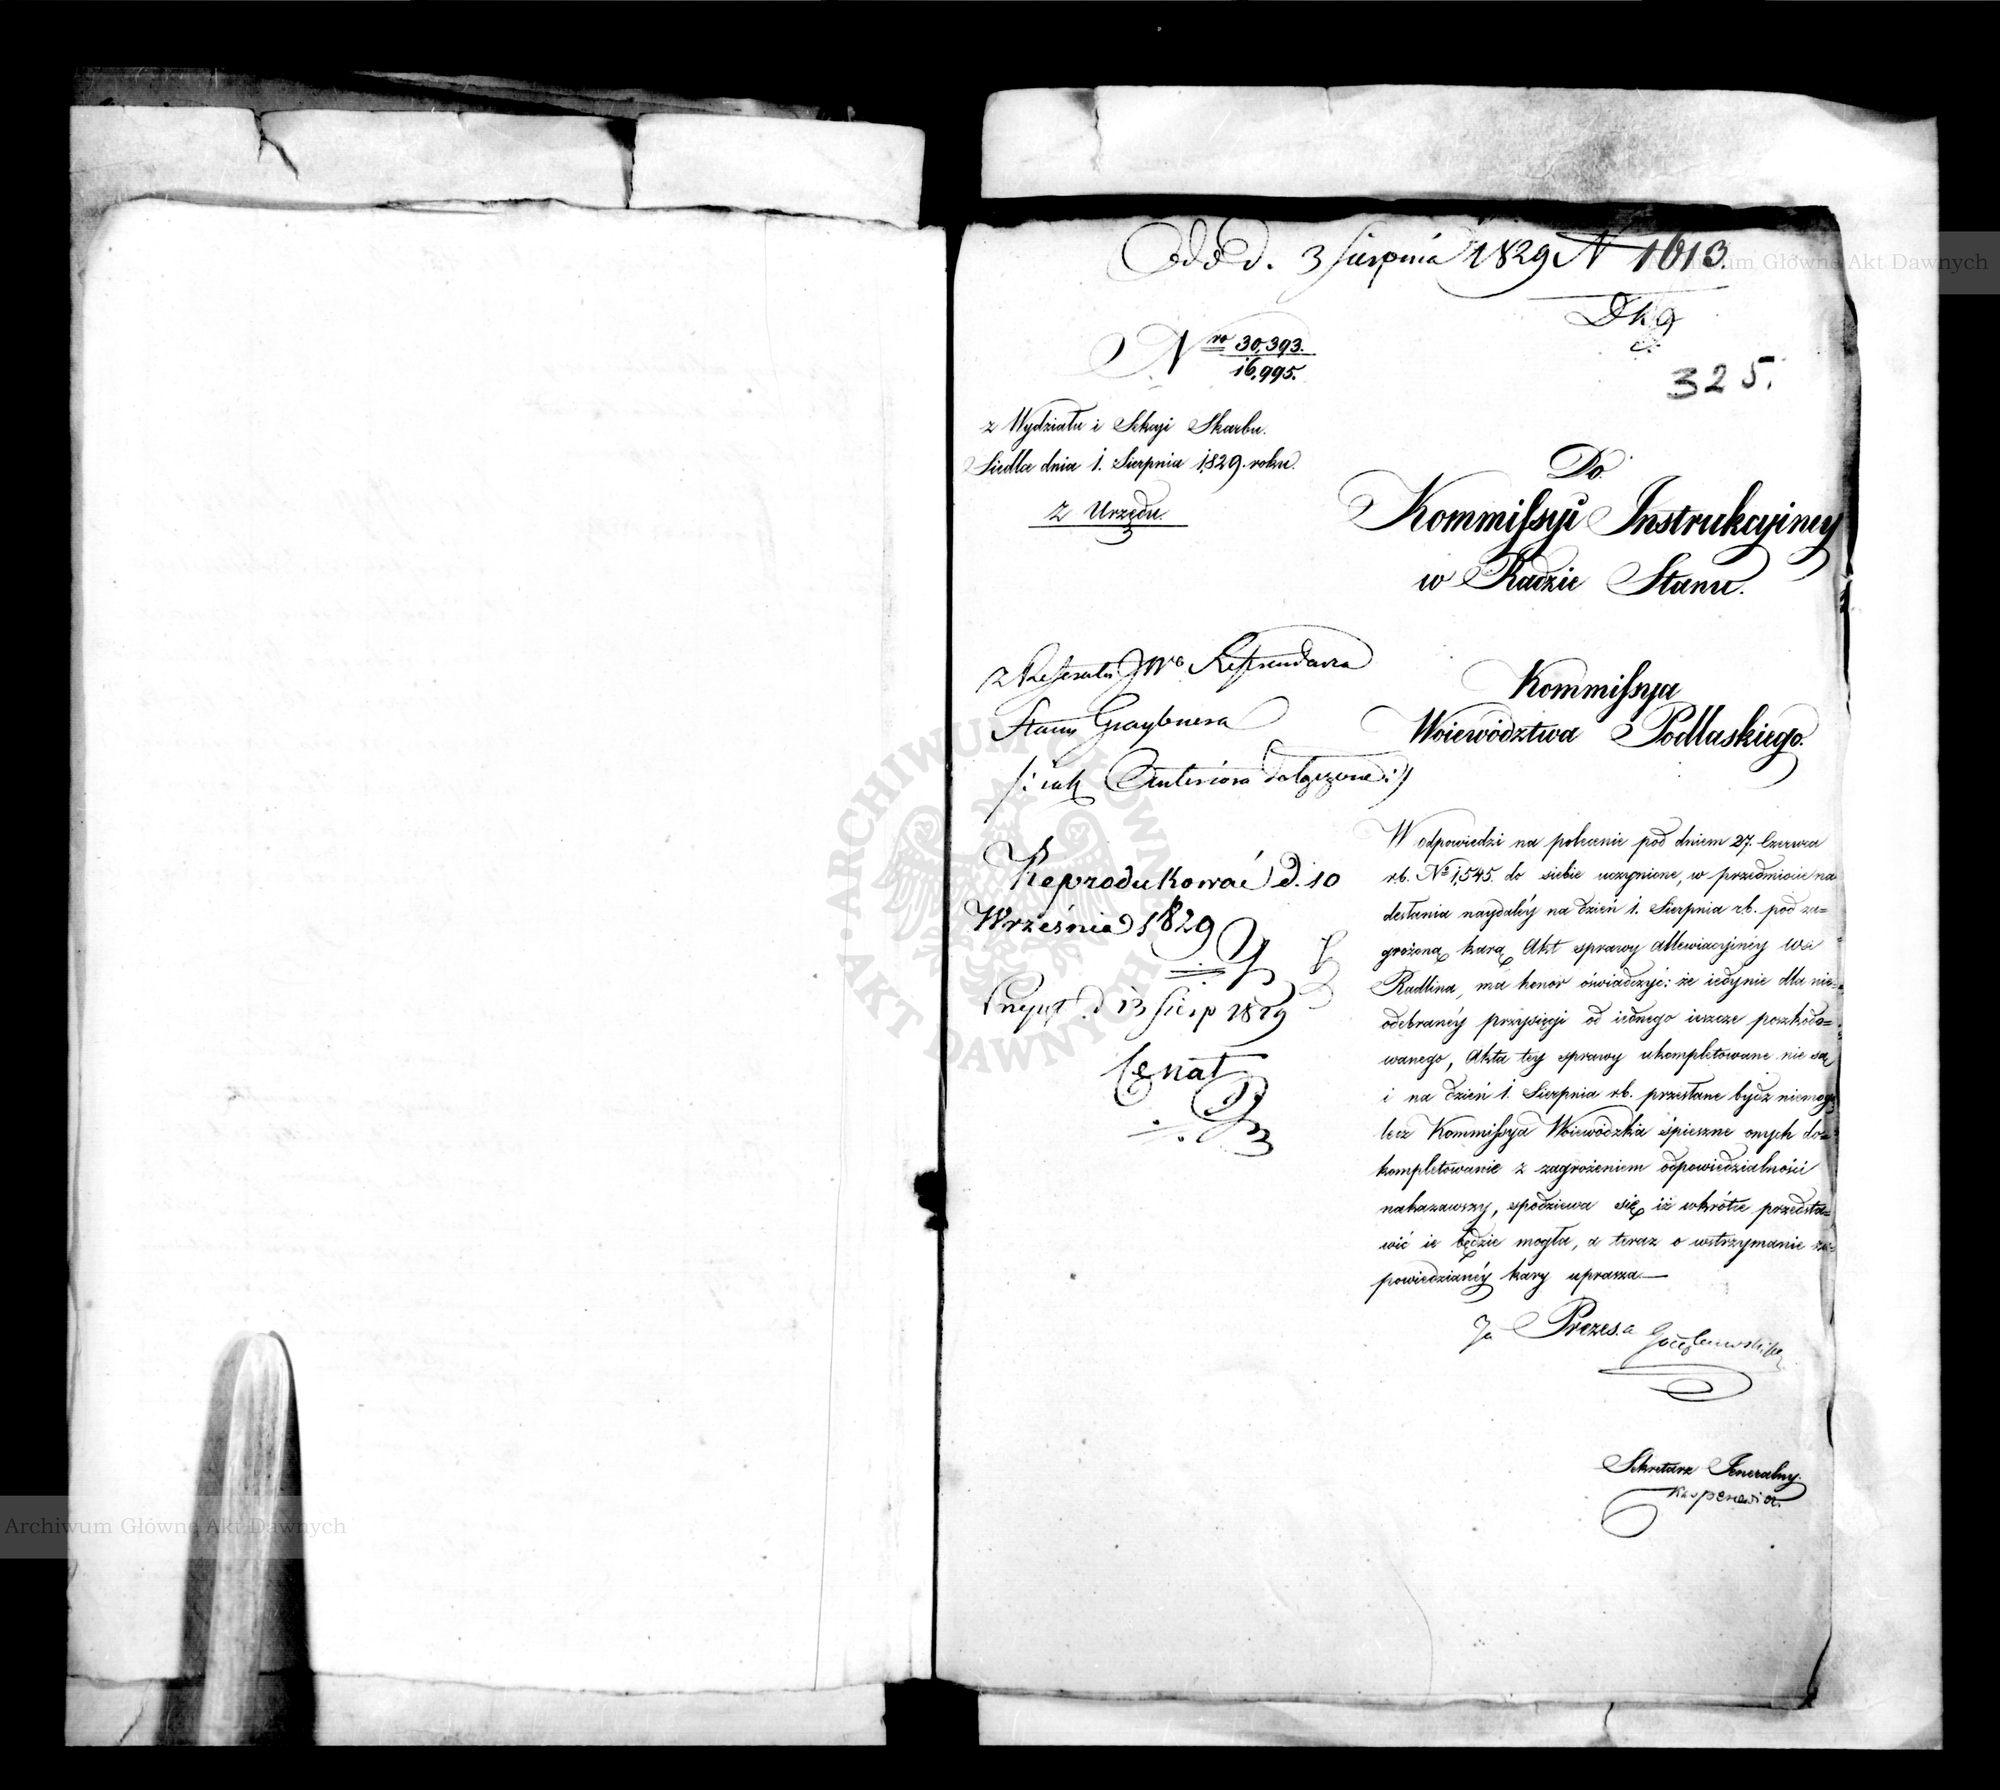 Odd. 3 Sierpnia 1829 N 1613.
325.
Nro 30,393.
16,995.
z Wydziału i Sekcyi Skarbu.
Siedlce dnia 1. Sierpnia 1829. roku.
Z Urzędu.
Do
Kommissyi Instrukcyiney
w Radzie Stanu.
z Referatu JWo Referendarza
Stanu Graybnera
/: iak Anteriora dołączone :/
Reprodukować d. 10
Września 1829
d 13 Sierp 1829
Kommissya
Woiewództwa Podlaskiego.
W odpowiedzi na polecenie pod dniem 27. Czerwca
r.b. No 1,545. do siebie uczynione, w przedmiocie na
desłania naydaléy na dzień 1. Sierpnia r.b. pod za=
grożoną karą Akt sprawy allewiacyjnéy wsi
Radlina, ma honor oświadczyć: że iedynie dla nie=
odebranéy przysięgi od iednego ieszcze poszkodo=
wanego, Akta tey sprawy ukompletowane nie są
i na dzień 1. Sierpnia r.b. przesłane bydź niemogą
lecz Kommissya Woiewódzka śpieszne onych do=
kompletowanie z zagrożeniem odpowiedzialności
nakazawszy, spodziewa się iż wkrótce przedsta=
wić ie będzie mogła, a teraz o wstrzymanie za=
powiedzianéy kary uprasza.—
Za Prezesa
Sekretarz Jeneralny.
Archiwum Główne Akt Dawnych
Archiwum Główne Akt Dawnych
ARCHIWUM GŁÓWNE AKT DAWNYCH